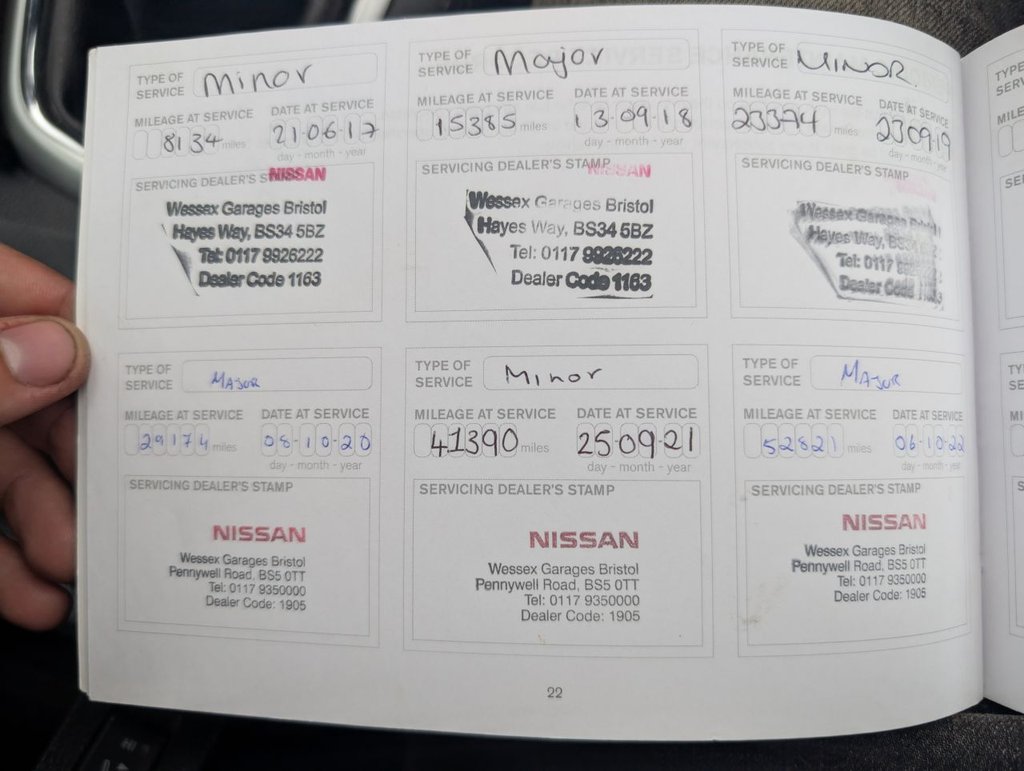 TYPE OF SERVICE Minor
MILEAGE AT SERVICE DATE AT SERVICE
8134 miles 21-06-17
day - month - year
SERVICING DEALER'S STAMP
NISSAN
Wessex Garages Bristol
Hayes Way, BS34 5BZ
Tel: 0117 9926222
Dealer Code 1163
TYPE OF SERVICE Major
MILEAGE AT SERVICE DATE AT SERVICE
15385 miles 13-09-18
day - month - year
SERVICING DEALER'S STAMP
NISSAN
Wessex Garages Bristol
Hayes Way, BS34 5BZ
Tel: 0117 9926222
Dealer Code 1163
TYPE OF SERVICE MINOR
MILEAGE AT SERVICE DATE AT SERVICE
23374 miles 230919
day - month - year
SERVICING DEALER'S STAMP
Wessex Garages Bristol
Hayes Way,
Tel: 0117
Dealer Code
TYPE OF SERVICE MAJOR
MILEAGE AT SERVICE DATE AT SERVICE
29174 miles 08-10-20
day - month - year
SERVICING DEALER'S STAMP
NISSAN
Wessex Garages Bristol
Pennywell Road, BS5 0TT
Tel: 0117 9350000
Dealer Code: 1905
TYPE OF SERVICE Minor
MILEAGE AT SERVICE DATE AT SERVICE
41390 miles 25-09-21
day - month - year
SERVICING DEALER'S STAMP
NISSAN
Wessex Garages Bristol
Pennywell Road, BS5 0TT
Tel: 0117 9350000
Dealer Code: 1905
TYPE OF SERVICE MAJOR
MILEAGE AT SERVICE DATE AT SERVICE
52821 miles 06-10-22
day - month - year
SERVICING DEALER'S STAMP
NISSAN
Wessex Garages Bristol
Pennywell Road, BS5 0TT
Tel: 0117 9350000
Dealer Code: 1905
22